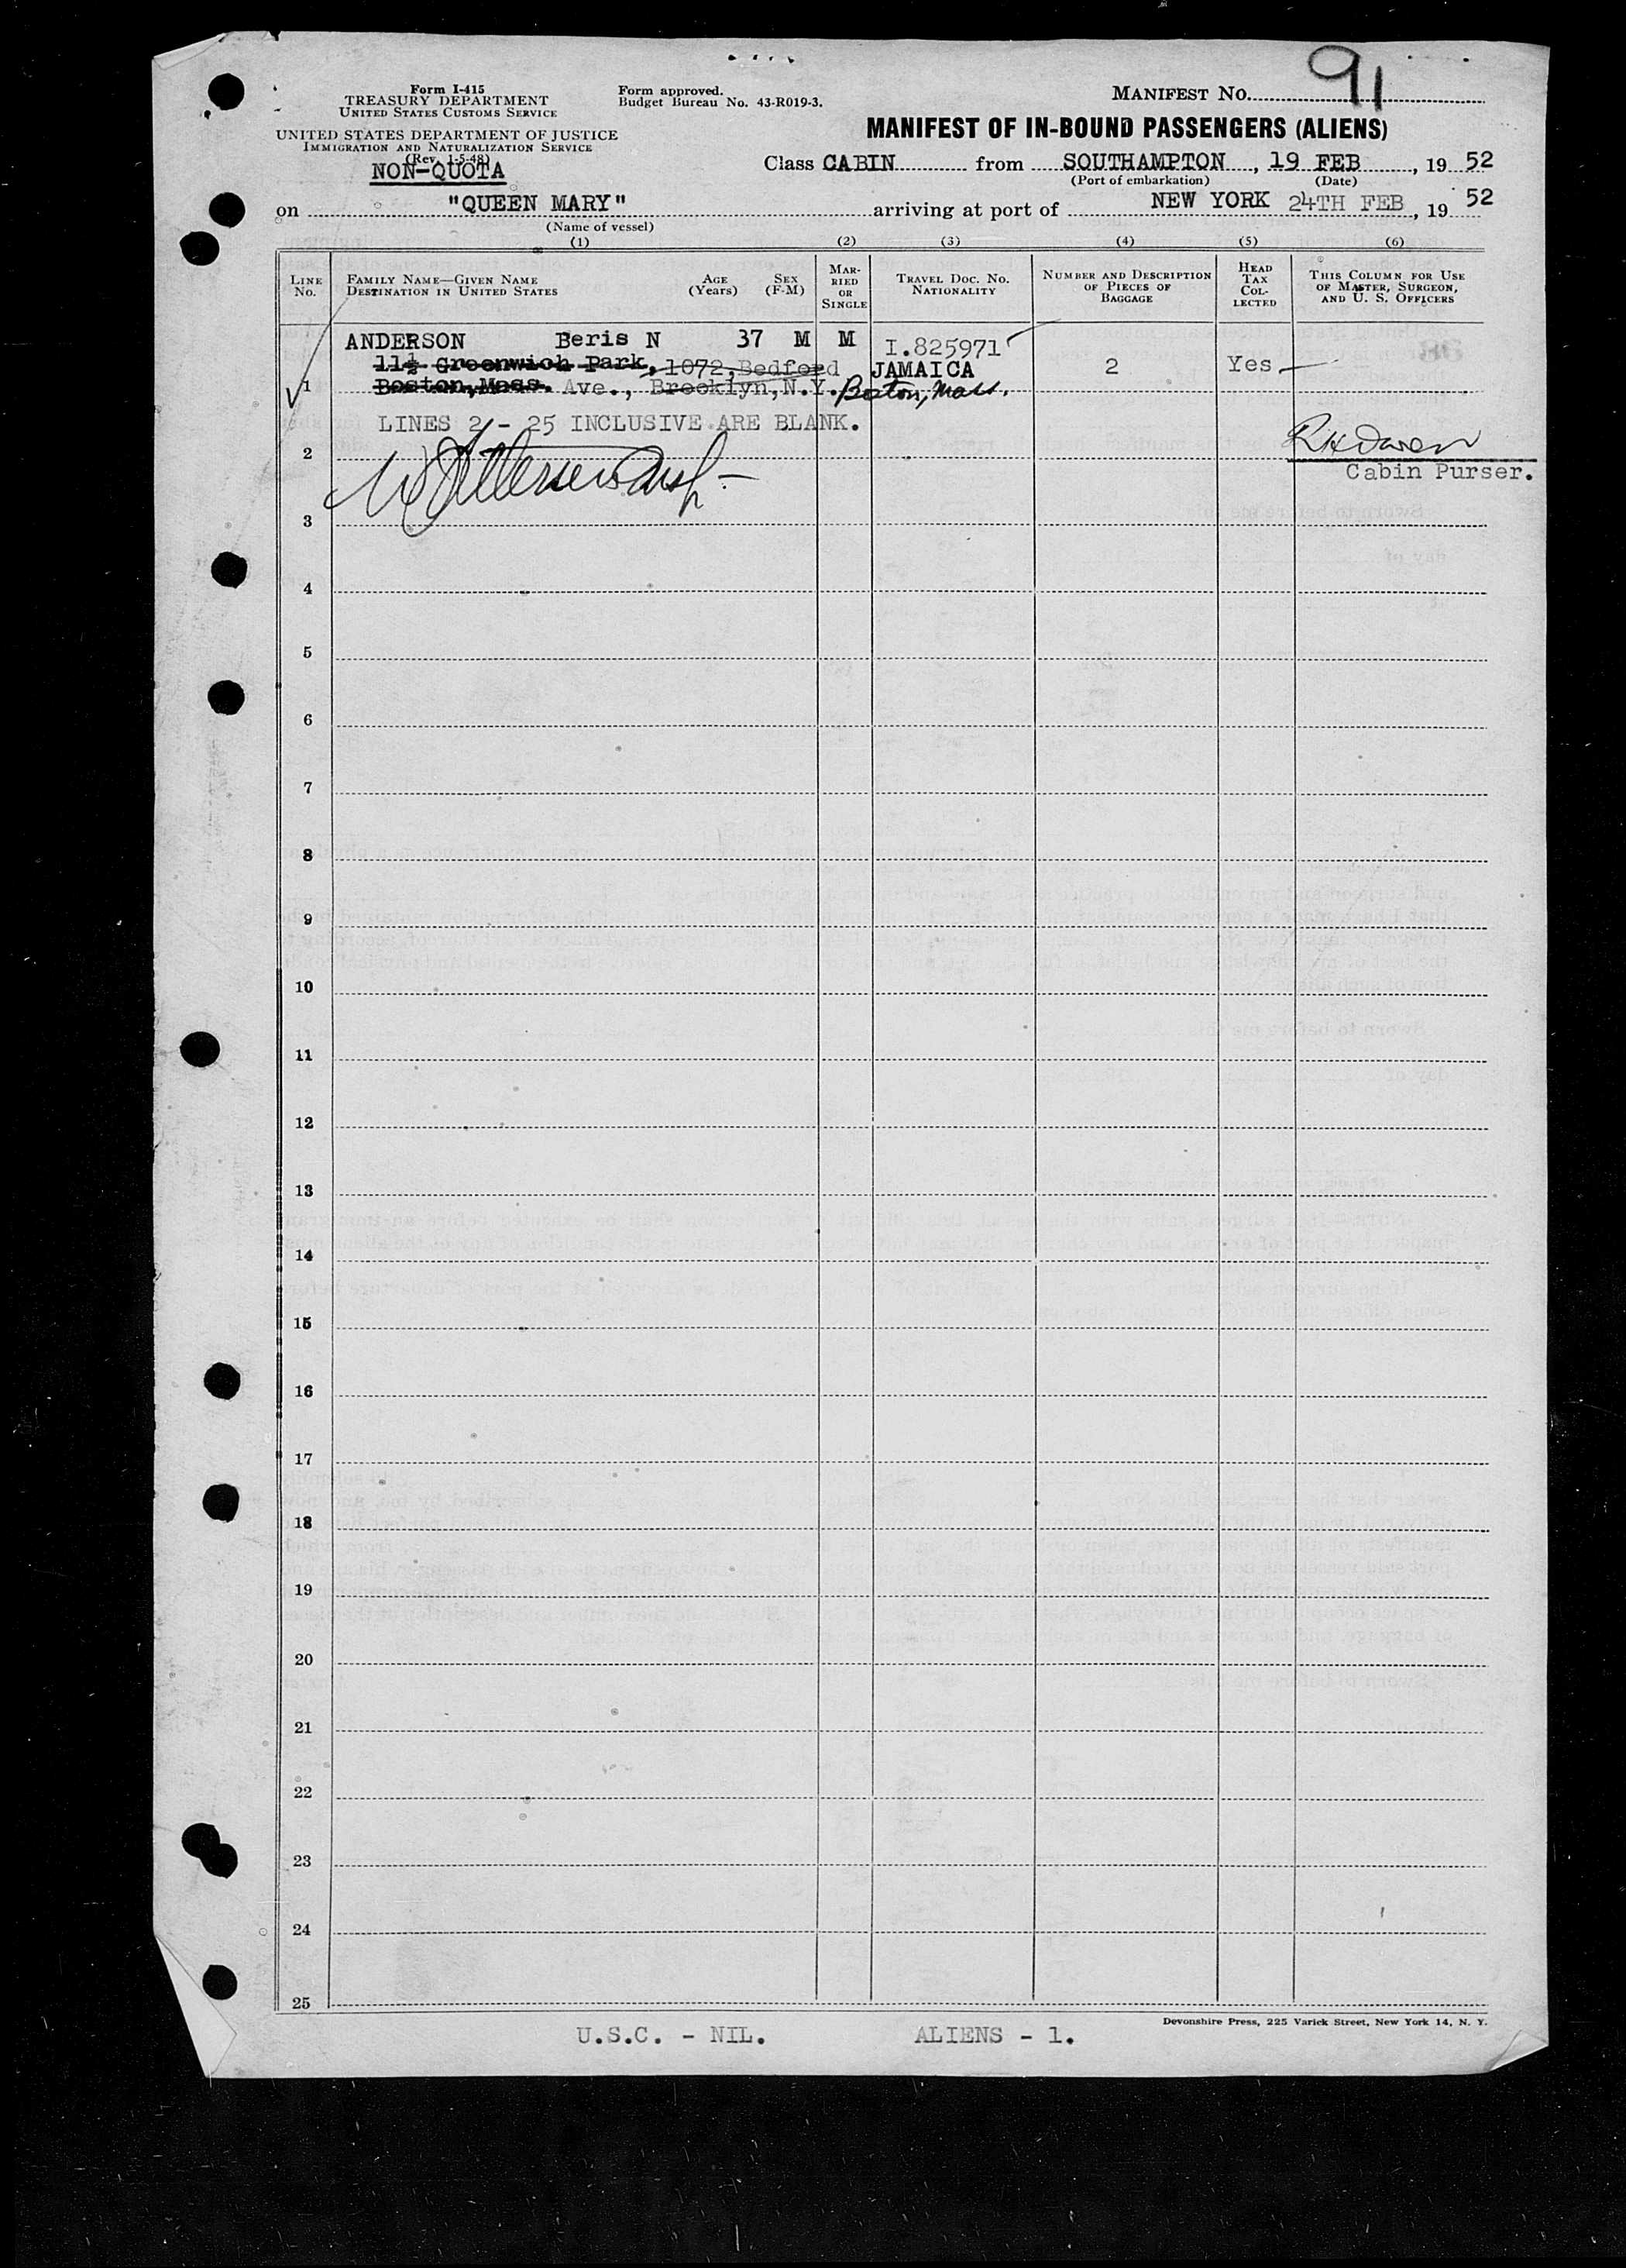 91
Form I-415
TREASURY DEPARTMENT
UNITED STATES CUSTOMS SERVICE
UNITED STATES DEPARTMENT OF JUSTICE
IMMIGRATION AND NATURALIZATION SERVICE
(Rev. 1-5-48)
NON-QUOTA
Form approved.
Budget Bureau No. 43-R019-3.
MANIFEST NO.
MANIFEST OF IN-BOUND PASSENGERS (ALIENS)
Class CABIN from SOUTHAMPTON, 19 FEB, 19 52
(Port of embarkation) (Date)
on "QUEEN MARY" arriving at port of NEW YORK 24TH FEB, 19 52
(Name of vessel)
(1) (2) (3) (4) (5) (6)
LINE NO.
FAMILY NAME—GIVEN NAME
DESTINATION IN UNITED STATES
AGE (Years)
SEX (F-M)
MARRIED OR SINGLE
TRAVEL DOC. NO. NATIONALITY
NUMBER AND DESCRIPTION OF PIECES OF BAGGAGE
HEAD TAX COLLECTED
THIS COLUMN FOR USE OF MASTER, SURGEON, AND U. S. OFFICERS
ANDERSON Beris N 37 M M I.825971
11½ Greenwich Park, 1072, Bedford JAMAICA 2 Yes
1 Boston, Mass. Ave., Brooklyn, N.Y. Boston, Mass.
LINES 2 - 25 INCLUSIVE ARE BLANK.
2
Cabin Purser.
3
4
5
6
7
8
9
10
11
12
13
14
15
16
17
18
19
20
21
22
23
24
25
Devonshire Press, 225 Varick Street, New York 14, N. Y.
U.S.C. - NIL. ALIENS - 1.